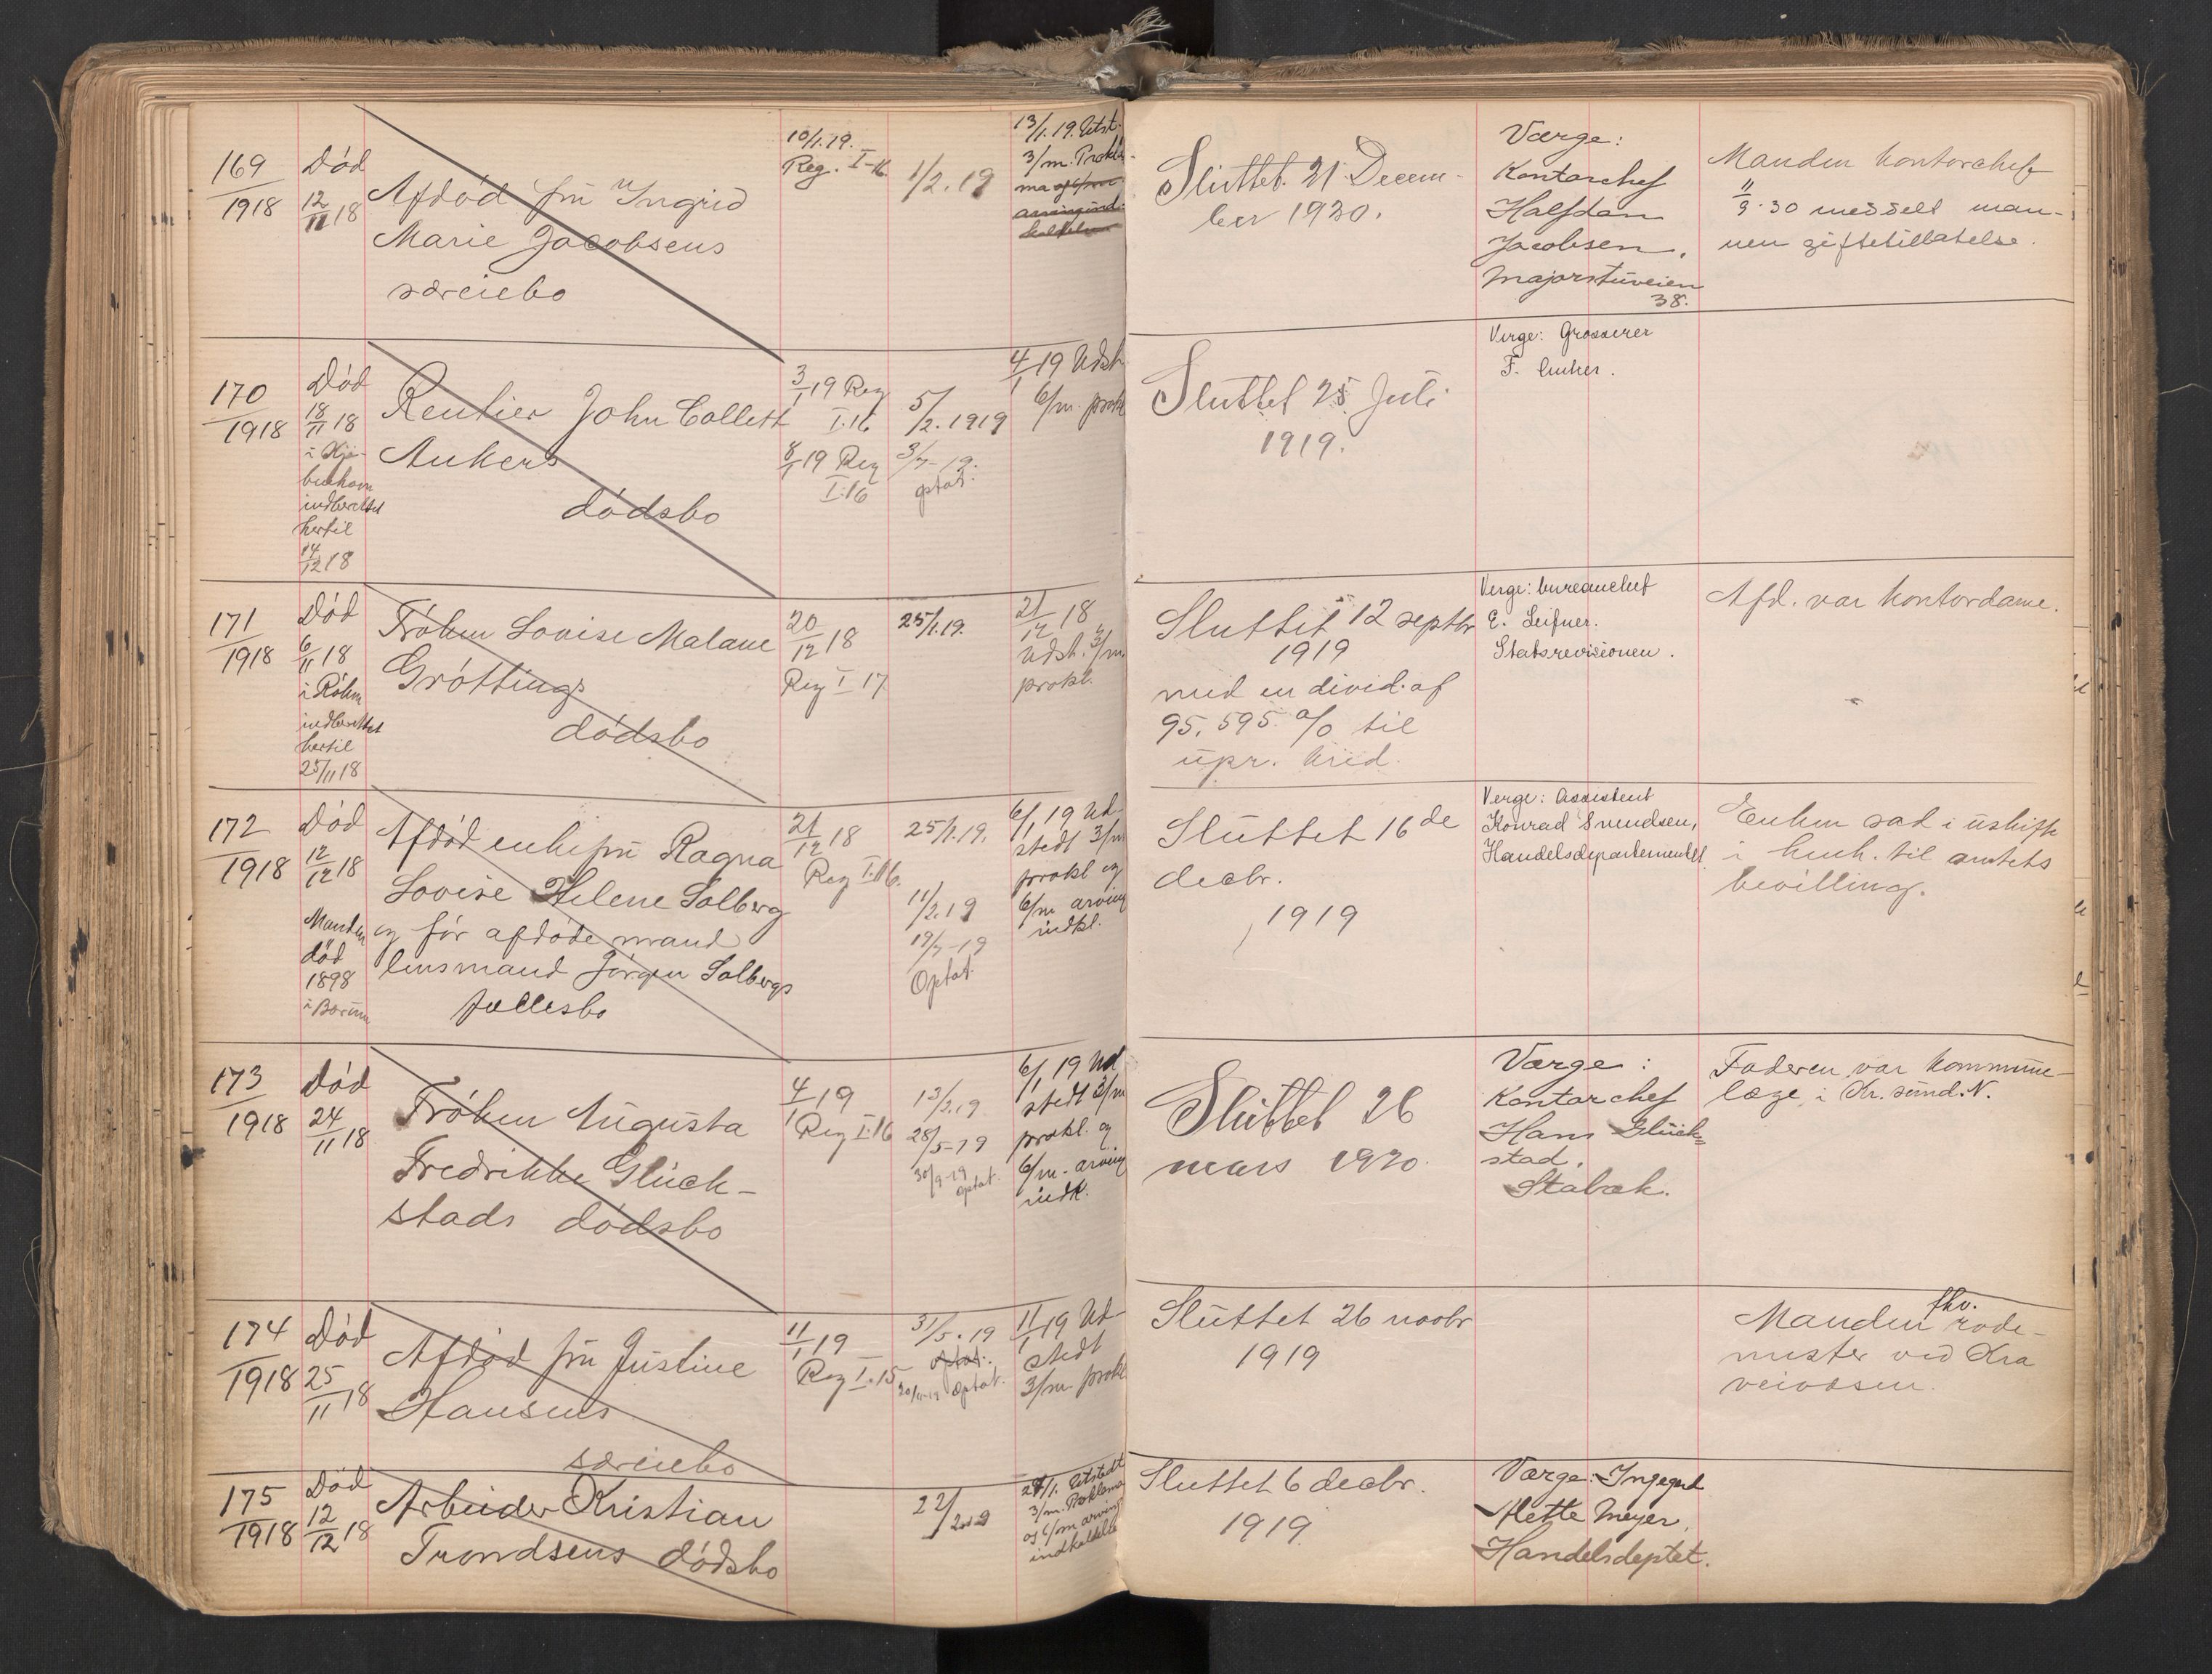 169
1918
Død
12
11 18
Afdød fru Ingrid
Marie Jacobsens
særeiebo
10/1.19.
Reg. I-16
1/2.19
13/1.19. Utst.
3/m. Prokla-
ma og 6/m
Sluttet. 21 Decem-
ber 1920.
Værge:
Kontorchef
Halfdan
Jacobsen,
Majorstuveien
38.
Manden kontorchef
11
9.30 meddelt man-
nen giftetillatelse.
170
1918
Død
18
11 18
i Kjø-
benhavn
indberettet
hertil
14
12 18
Rentier John Collett
Ankers
dødsbo
3
1 19 Reg
I.16
8
1 19 Reg
I.16
5/2.1919
3/7-19.
optat.
4
1 19 Udst.
6/m. prokl
Sluttet 25 Juli
1919.
Verge: Grosserer
F. Anker.
171
1918
Død
6
11 18
indberettet
hertil
25/11 18
Frøken Lovise Malane
Grøttings
dødsbo
20
12 18
Reg I 17
25/1.19.
21
12 18
Udst. 3/m.
prokl.
Sluttet 12 septbr
1919
med en divid. af
95,595 % til
upr. kred.
Verge: bureauchef
E. Leifner.
Statsrevisionen.
Afd. var kontordame.
172
1918
Død
12
12 18
Manden
død
1898
i Bærum
Afdød enkefru Ragna
Lovise Helene Solberg
og før afdøde mand
lensmand Jørgen Solbergs
fællesbo
21
12 18
Reg I.16.
25/1.19.
11/2.19
19/7-19
Optat.
6/1 19 Ud-
stedt 3/m
prokl og
6/m arving
indkl.
Sluttet 16 de
decbr.
1919
Verge: Assistent
Konrad Svendsen,
Handelsdepartementet
Enken sad i uskifte
i henh. til amtets
bevilling.
173
1918
Død
24
11 18
Frøken Augusta
Fredrikke Glück-
stads dødsbo
4
1 19
Reg I.16
13/2.19
28/5-19
30/9-19
optat.
6/1 19 Ud
stedt 3/m
prokl. og
6/m. arving
indk.
Sluttet 26
mars 1920.
Værge:
Kontorchef
Hans Glück-
stad,
Stabæk.
Faderen var kommune-
læge i Kr.sund.N.
174
1918
Død
25
11 18
Afdød fru Justine
Hansens
særeiebo
11
1 19
Reg I.15
31/5.19
optat.
optat.
11
1 19 Ud-
stedt
3/m. prokl
Sluttet 26 novbr
1919
fhv.
Manden rode-
mester ved Kra
veivæsen.
175
1918
Død
12
12 18
Arbeider Kristian
Trondsens dødsbo
22/2.19
Utstedt
3/m. Proklama
og 6/m arving
indkaldelse
Sluttet 6 decbr.
1919
Værge: Ingegerd
Mette Meyer,
Handelsdeptet.